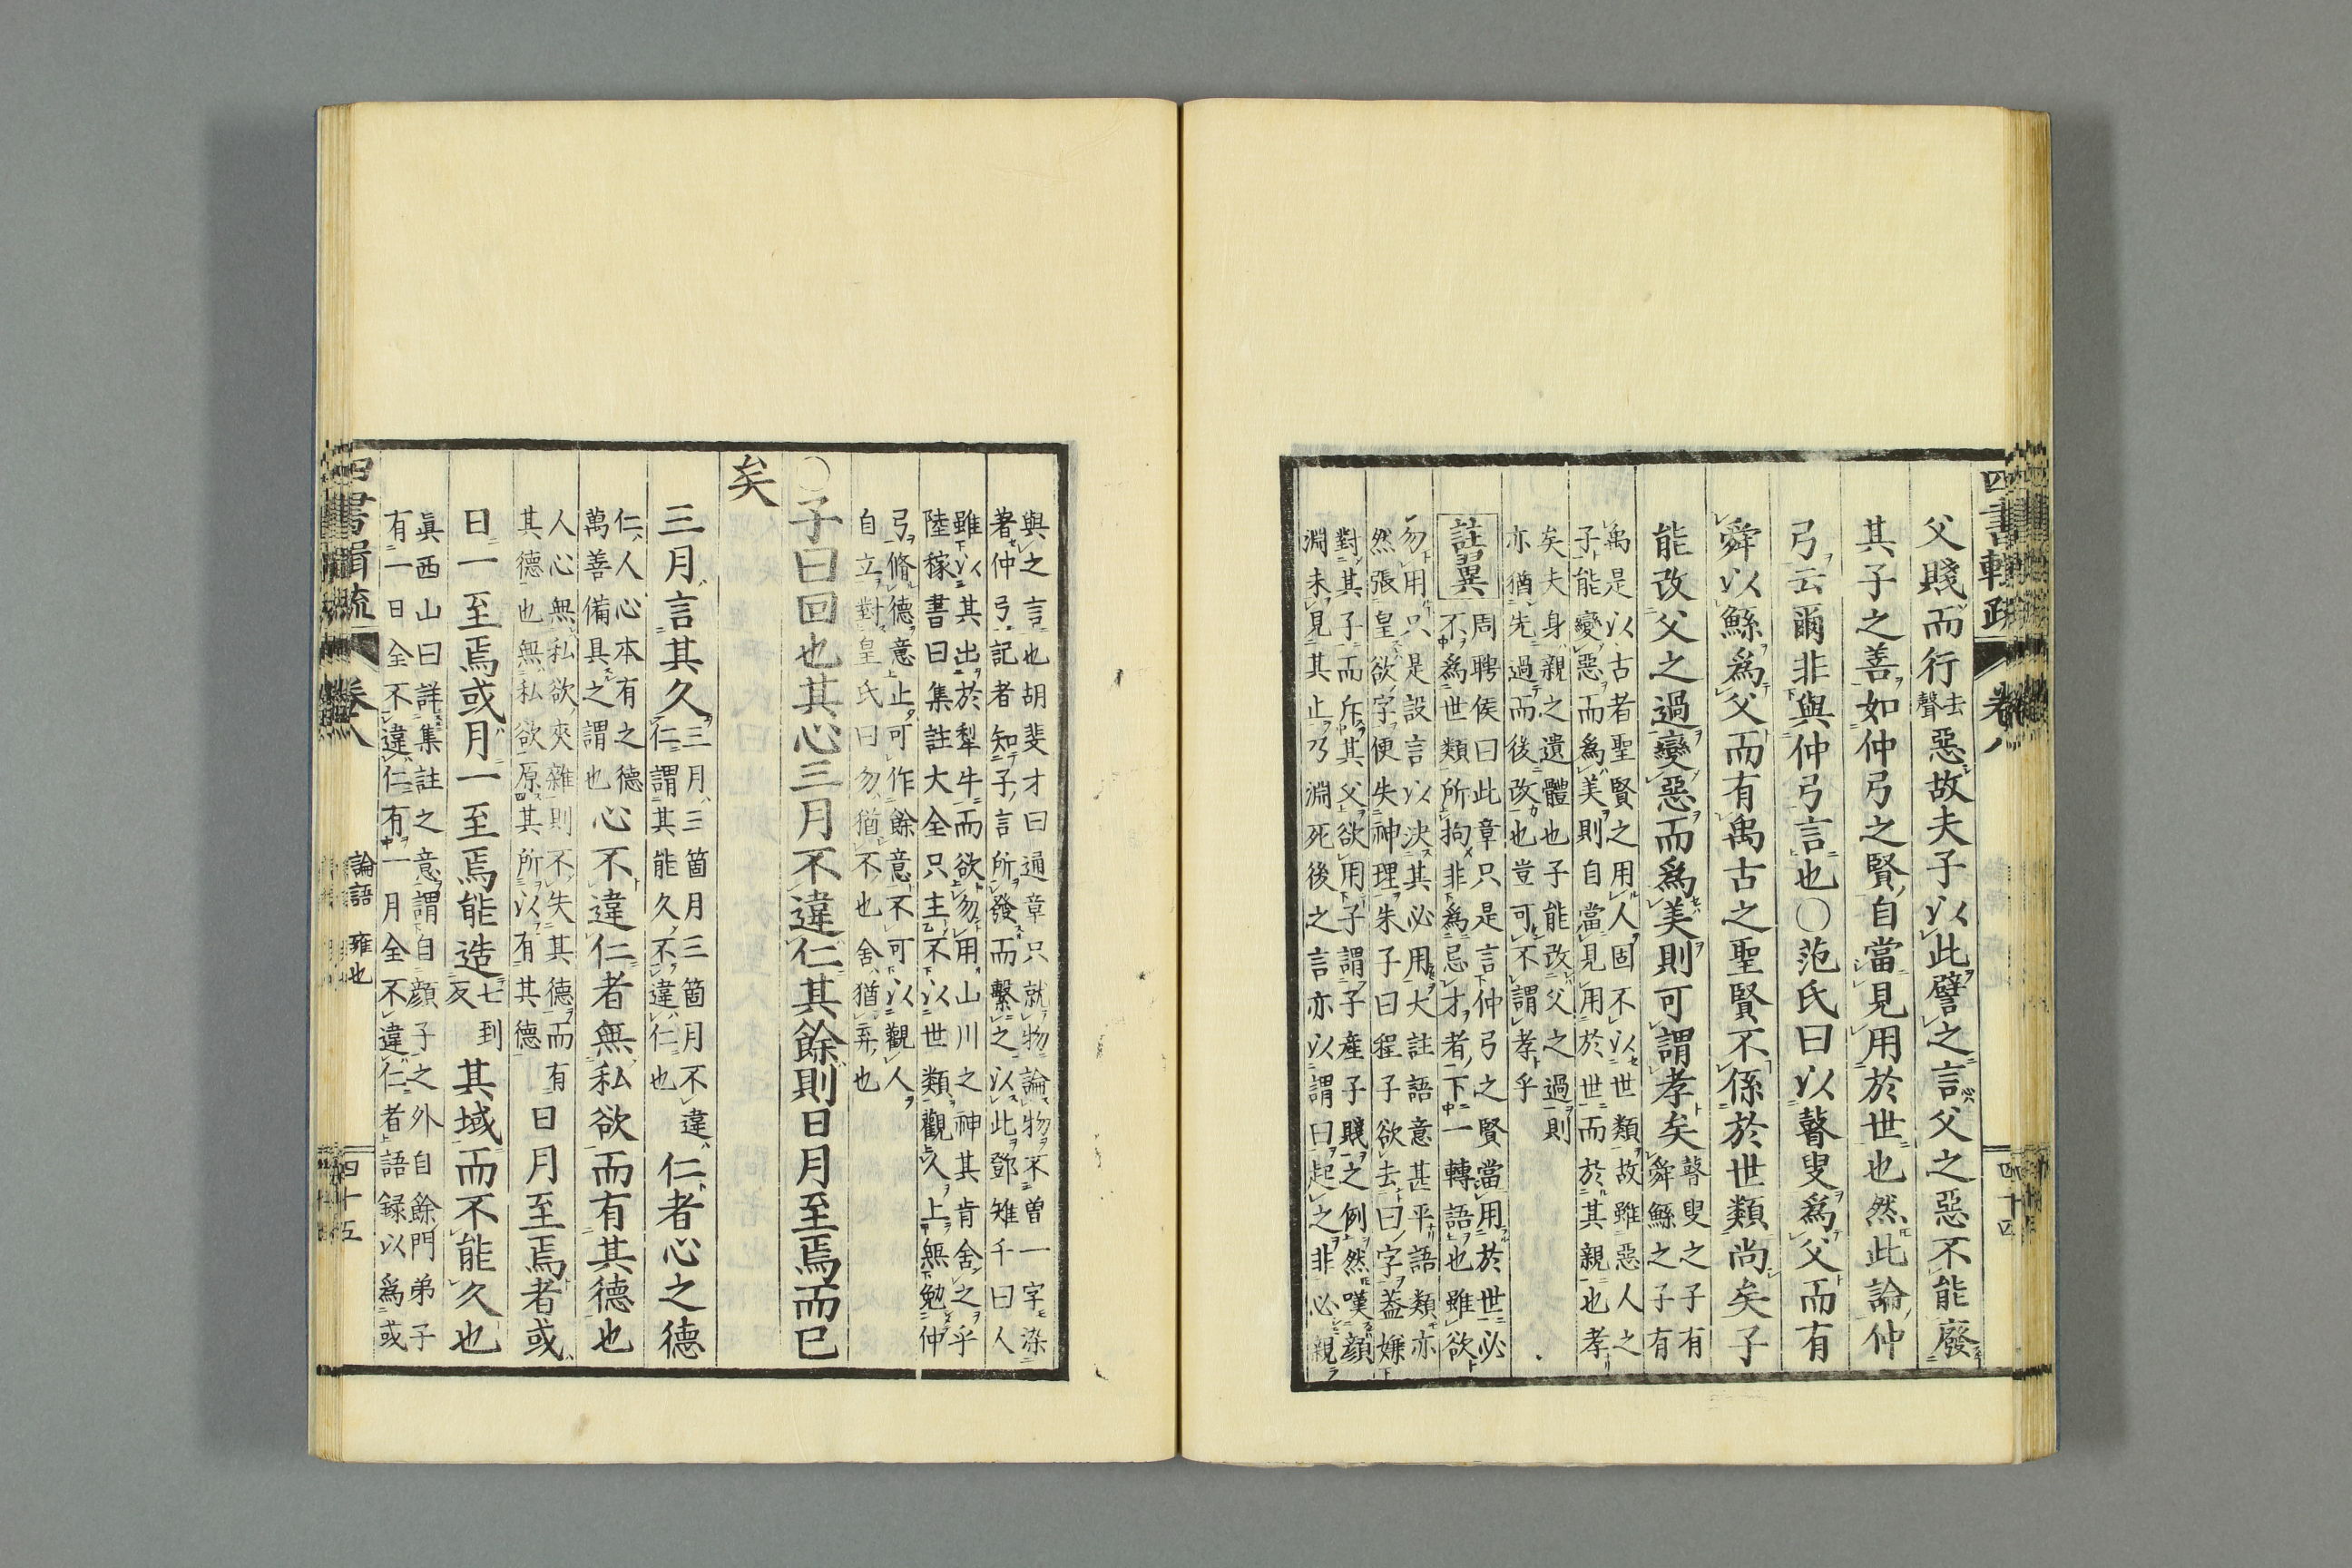 四書輯疏 卷八 四十四
父賤而行去聲惡故夫子以此譬之言父之惡不能廢
其子之善如仲弓之賢自當見用於世也然此論仲
弓云爾非與仲弓言也〇范氏曰以瞽叟爲父而有
舜以鯀爲父而有禹古之聖賢不係於世類尚矣子
能改父之過變惡而爲美則可謂孝矣瞽叟之子有
舜鯀之子有
禹是以古者聖賢之用人固不以世類故雖惡人之
子能變惡而爲美則自當見用於世而於其親也孝
矣夫身親之遺體也子能改父之過則
亦猶先過而後改也豈可不謂孝乎
註翼 周聘侯曰此章只是言仲弓之賢當用於世必
不爲世類所拘非爲忌才者下一轉語也雖欲
勿用只是設言以決其必用大註語意甚平語類亦
然張皇欲字便失神理朱子曰程子欲去曰字蓋嫌
對其子而斥其父欲用子謂子產子賤之例然嘆顏
淵未見其止乃淵死後之言亦以謂曰起之非必親
與之言也胡斐才曰通章只就物論物不曽一字染
著仲弓記者知子言所發而繫之以此鄧雉千曰人
雖以其出於犁牛而欲勿用山川之神其肯舍之乎
陸稼書曰集註大全只主不以世類觀人上無勉仲
弓脩德意止可作餘意不可以觀人
自立對皇氏曰勿猶不也舍猶弃也
〇子曰回也其心三月不違仁其餘則日月至焉而已
矣
三月言其久三月三箇月三箇月不違
仁謂其能久不違仁也仁者心之德
仁人心本有之德
萬善備具之謂也心不違仁者無私欲而有其德也
人心無私欲夾雜則不失其德而有
其德也無私欲原其所以有其德日月至焉者或
日一至焉或月一至焉能造七到
反其域而不能久也
眞西山曰詳集註之意謂自顏子之外自餘門弟子
有一日全不違仁有一月全不違仁者語録以爲或
四書輯疏 卷八 論語 雍也 四十五